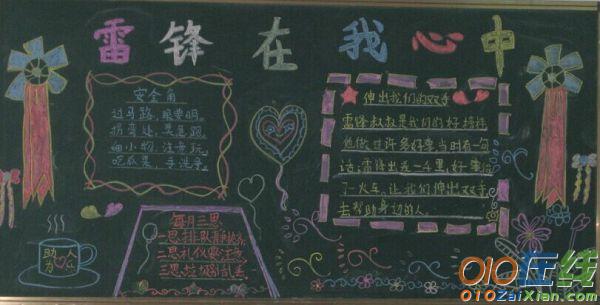 雷锋在我心中
安全角
过马路,眼要明。
拐弯处,莫急跑,
细小物,注意玩,
吃瓜果,手洗净。
伸出我们的双手
雷锋叔叔是我们的好榜样
他做过许多好事当时有一句
话:雷锋出差一千里,好事做
了一火车,让我们伸出双手
去帮助身边的人。
每月三思
一思排队
二思礼仪
三思垃圾
助人
为乐
010在线
010ZaiXian.com